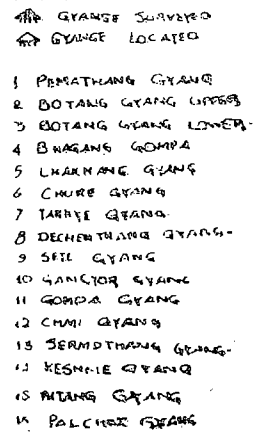 GYANGE SURVEYED
GYANGE LOCATED
1 PEMATHANG GYANG
2 BOTANG GYANG UPPER
3 BOTANG GYANG LOWER
4 BHAGANG GOMPA
5 LHAKHANG GYANG
6 CHURE GYANG
7 TARKYE GYANG
8 DECHENTHANG GYANG
9 SETL GYANG
10 SANGYOR GYANG
11 GOMPA GYANG
12 CHMI GYANG
13 SERMOTHANG GYANG
14 GYANG
15 GYANG
16 PALCHOK GYANG